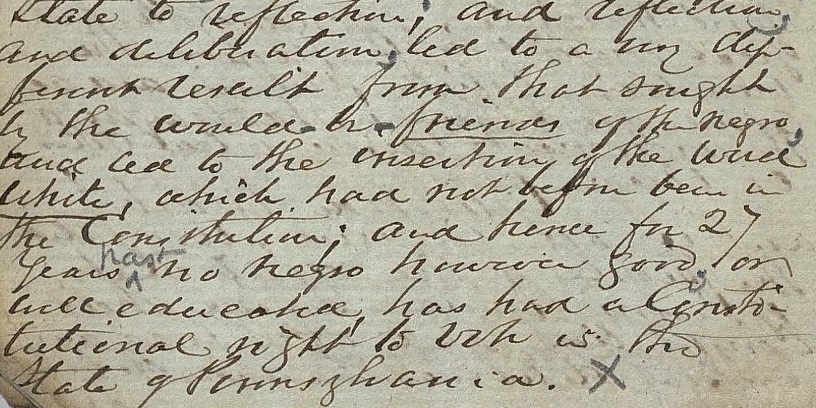 State to reflection; and reflection,
and deliberation, led to a very dif-
ferent result from that sought
by the would-be-friends of the negro,
and led to the insertion of the word
white, which had not before been in
the Constitution; and hence for 27
years past no negro however good, or
well educated, has had a Consti-
tutional right to vote in the
State of Pennsylvania. X